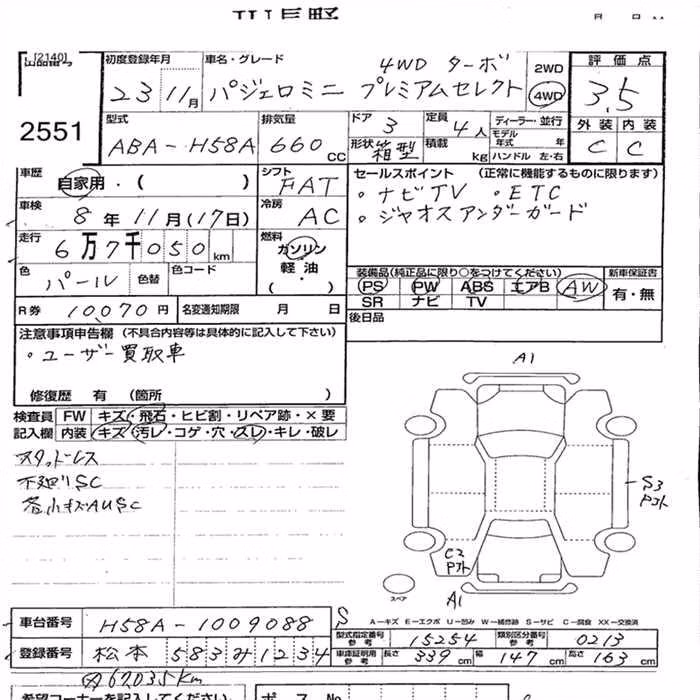 [2140]
2551
初度登録年月 車名・グレード 4WD ターボ 2WD 評価点
23 11月 パジェロミニ プレミアムセレクト 4WD 3.5
型式 排気量 ドア 3 定員 4人 ディーラー・並行 外装 内装
ABA-H58A 660 CC 形状 箱型 積載 kg モデル年式 年式 ハンドル 左・右 C C
車歴 自家用・( ) シフト FAT セールスポイント (正常に機能するものに限ります)
車検 8年11月(17日) 冷房 AC ・ナビTV ・ETC
・ジャオスアンダーガード
走行 6万7千050km 燃料 ガソリン 軽油 (・)
色 パール 色替 色コード 装備品(純正品に限り○をつけてください) 新車保証書
PS PW ABS エアB AW 有・無
SR ナビ TV
R券 10,070円 名変通知期限 月 日 後日品
注意事項申告欄 (不具合内容等は具体的に記入して下さい)
・ユーザー買取車
修復歴 有 (箇所 )
検査員 FW キズ・飛石・ヒビ割・リペア跡・×要
記入欄 内装 キズ・汚レ・コゲ・穴・スレ・キレ・破レ
スタッドレス
下廻りSC
各小キズAUSC
A1
S3
Pコト
C2
Pコト
A1
スペア
A-キズ E-エクボ U-凹み W-補修跡 S-サビ C-腐食 XX-交換済
車台番号 H58A-1009088 S
登録番号 松本 583み1234
型式指定番号 参考 15254 類別区分番号 参考 0213
車庫証明用 参考 長さ 339cm 幅 147cm 高さ 163cm
67,035Km
希望コーナーを記入して下さい ボス No